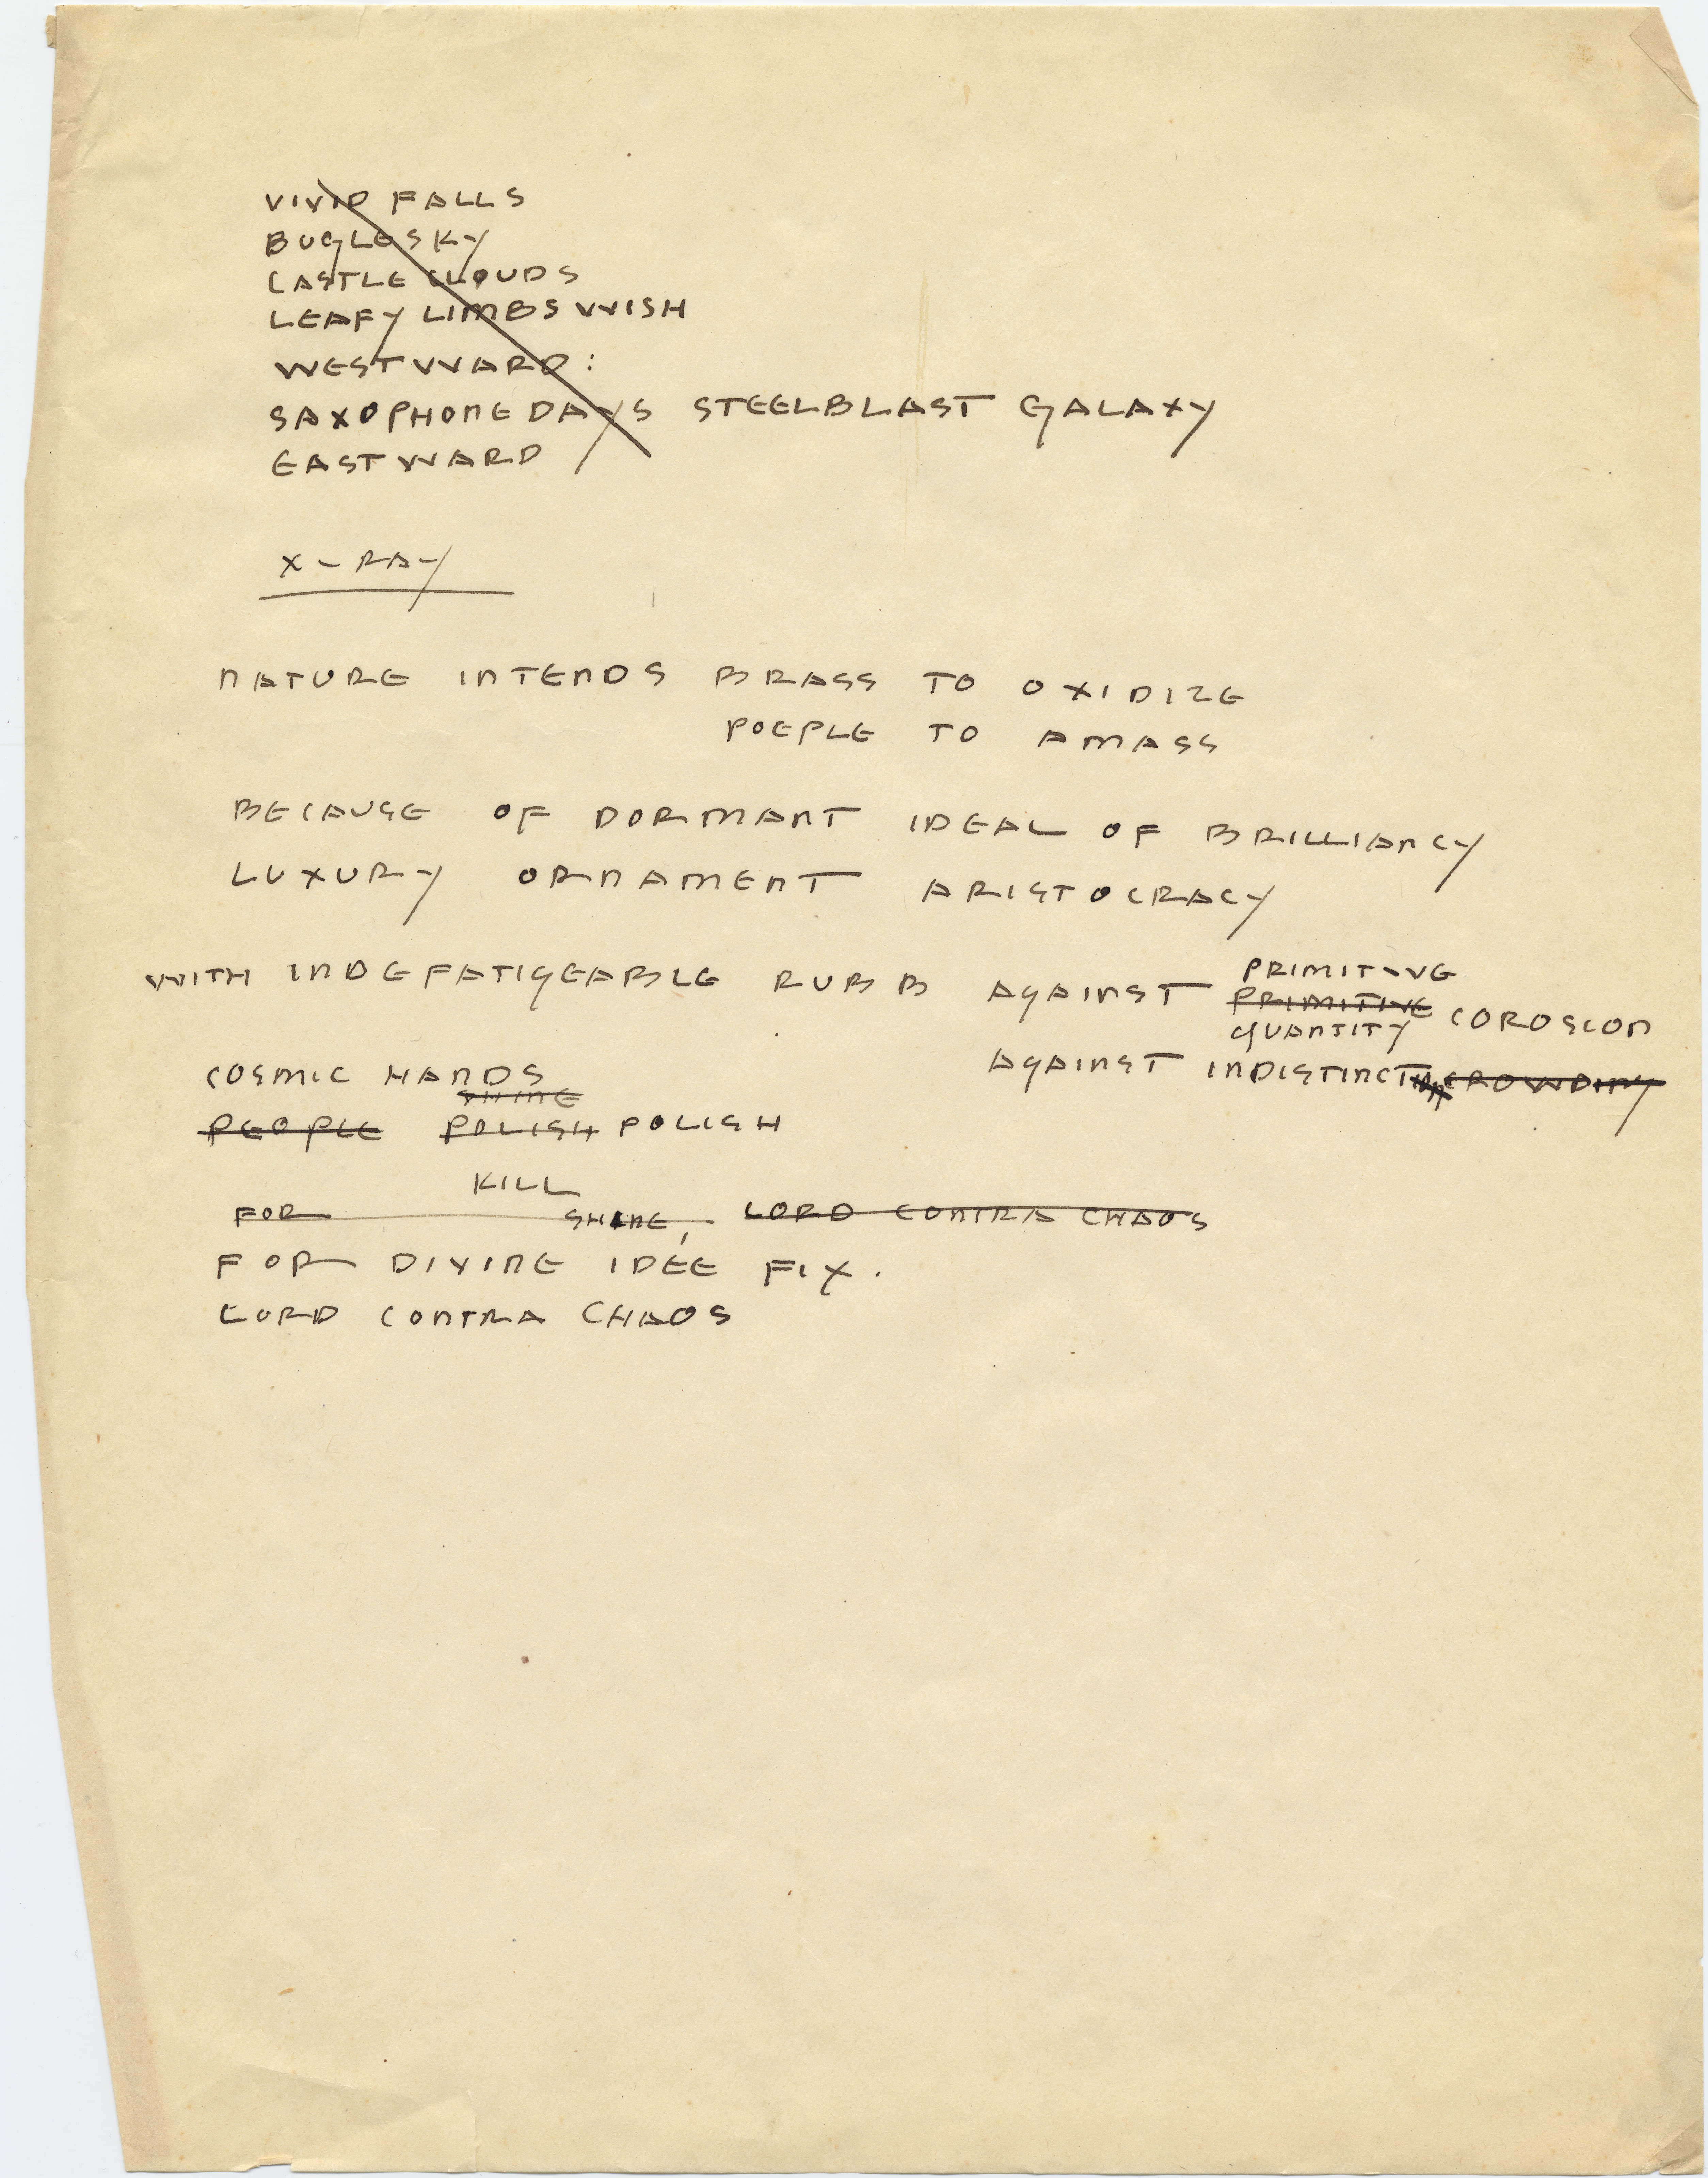 VIVID FALLS
BUGLESKY
CASTLE CLOUDS
LEAFY LIMBS WISH
WESTWARD:
SAXOPHONE DAYS STEELBLAST GALAXY
EASTWARD
X-RAY
NATURE INTENDS BRASS TO OXIDIZE
POEPLE TO AMASS
BECAUSE OF DORMANT IDEAL OF BRILLIANCY
LUXURY ORNAMENT ARISTOCRACY
PRIMITIVE
WITH INDEFATIGEABLE RUBB AGAINST PRIMITIVE COROSION
QUANTITY
AGAINST INDISTINCT CROWDING
COSMIC HANDS
SHINE
PEOPLE POLISH POLISH
KILL
FOR SHINE, LORD CONTRA CHAOS
FOR DIVINE IDÉE FIX.
LORD CONTRA CHAOS